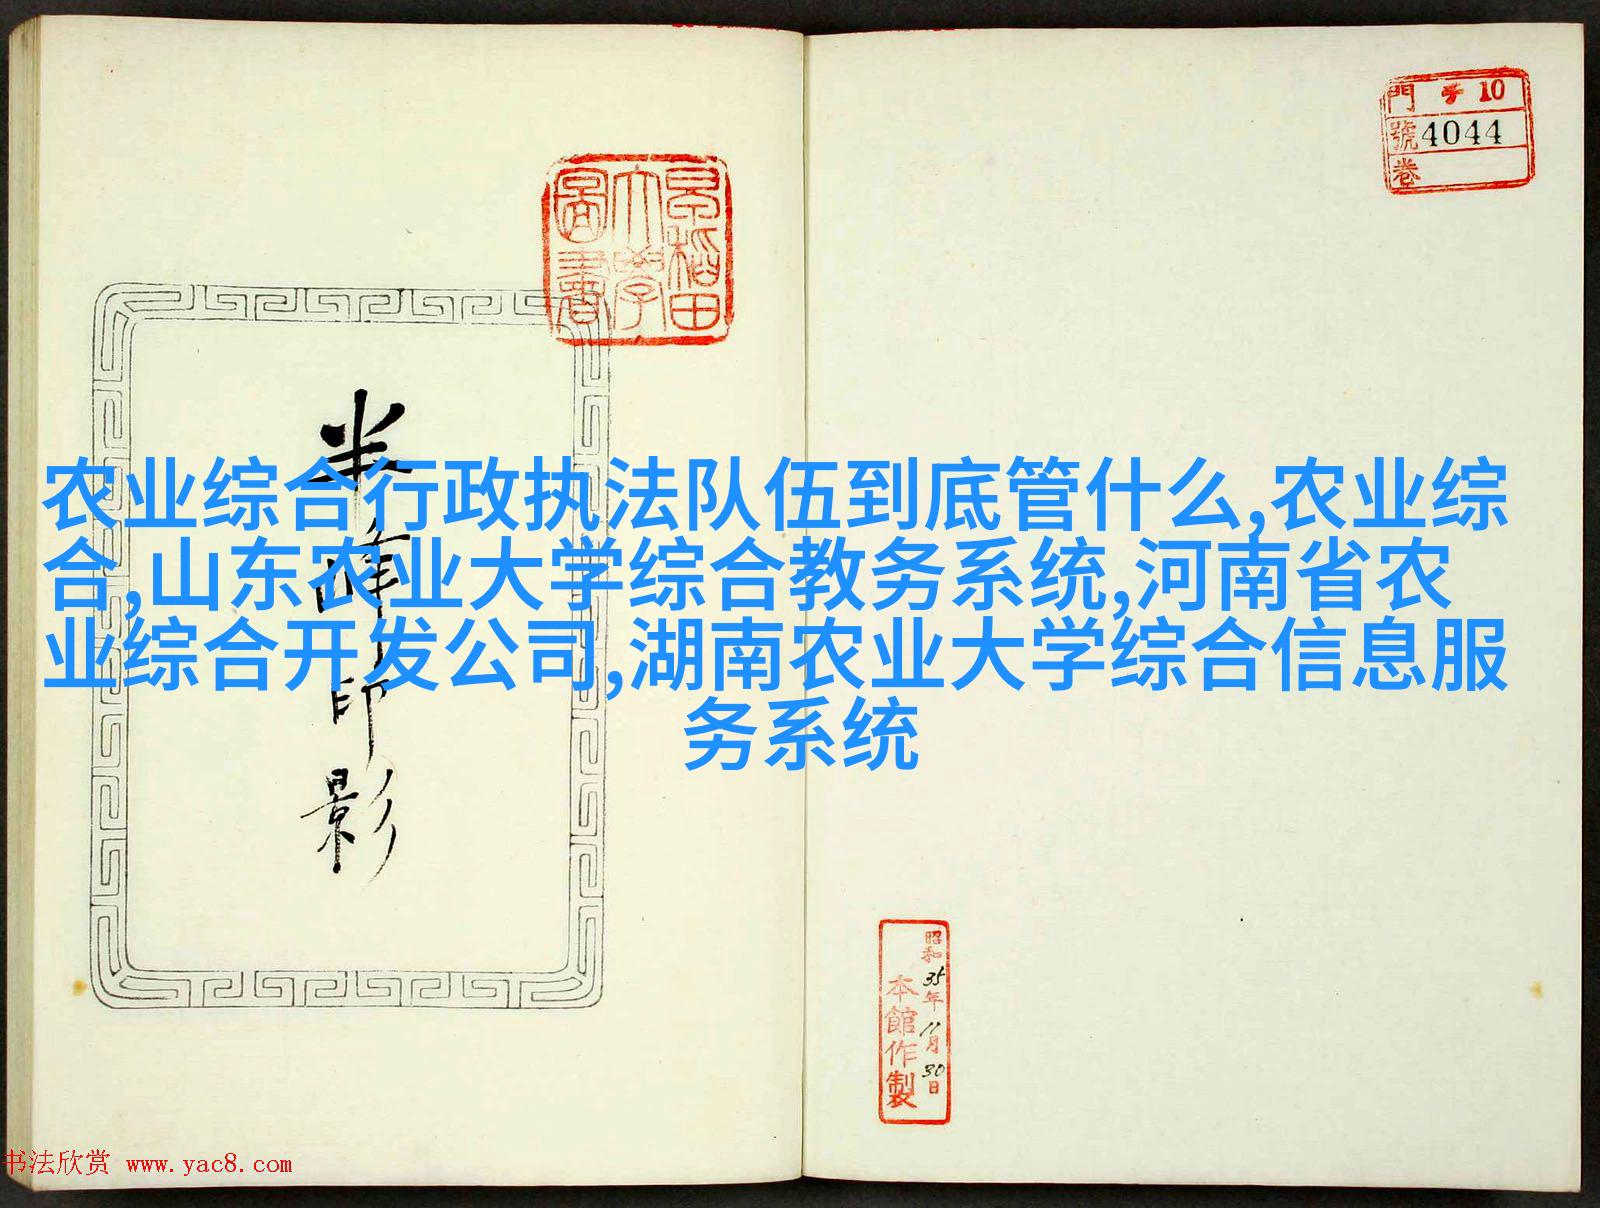 农业综合行政执法队伍到底管什么,农业综
合,山东农业大学综合教务系统,河南省农
业综合开发公司,湖南农业大学综合信息服
务系统
早稻田
大學
圖書
半峰印影
門 10
號 4044
卷
昭和35年11月30日
本館作製
书法欣赏 www.yac8.com